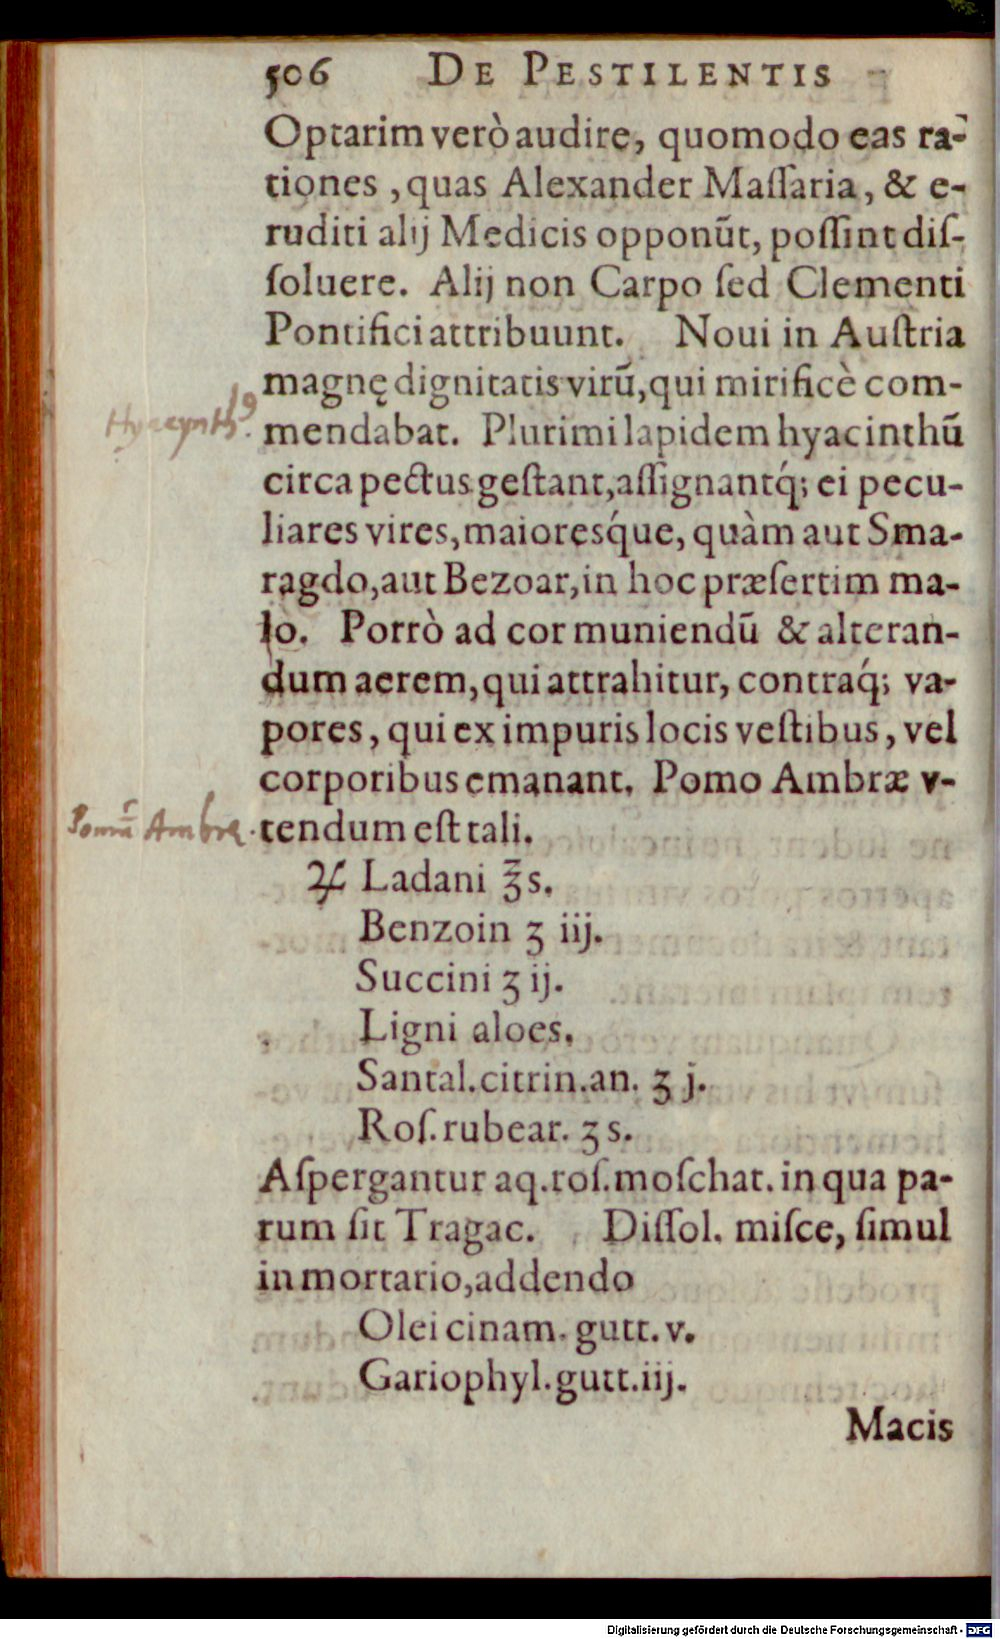 506 DE PESTILENTIS
Optarim verò audire, quomodo eas ra-
tiones, quas Alexander Maſſaria, & e-
ruditi alij Medicis opponūt, poſſint diſ-
ſoluere. Alij non Carpo ſed Clementi
Pontifici attribuunt. Noui in Auſtria
magnę dignitatis virū, qui mirificè com-
mendabat. Plurimi lapidem hyacinthū
circa pectus geſtant, aſſignantq́; ei pecu-
liares vires, maioresq́ue, quàm aut Sma-
ragdo, aut Bezoar, in hoc præſertim ma-
lo. Porrò ad cor muniendū & alteran-
dum aerem, qui attrahitur, contraq́; va-
pores, qui ex impuris locis veſtibus, vel
corporibus emanant. Pomo Ambræ v-
Pomū Ambræ.
tendum eſt tali.
♃ Ladani ℥ s.
Benzoin ʒ iij.
Succini ʒ ij.
Ligni aloes.
Santal. citrin. an. ʒ j.
Roſ. rubear. ʒ s.
Aſpergantur aq. roſ. moſchat. in qua pa-
rum ſit Tragac. Diſſol. miſce, ſimul
in mortario, addendo
Olei cinam. gutt. v.
Gariophyl. gutt. iij.
Macis
Digitalisierung gefördert durch die Deutsche Forschungsgemeinschaft - DFG